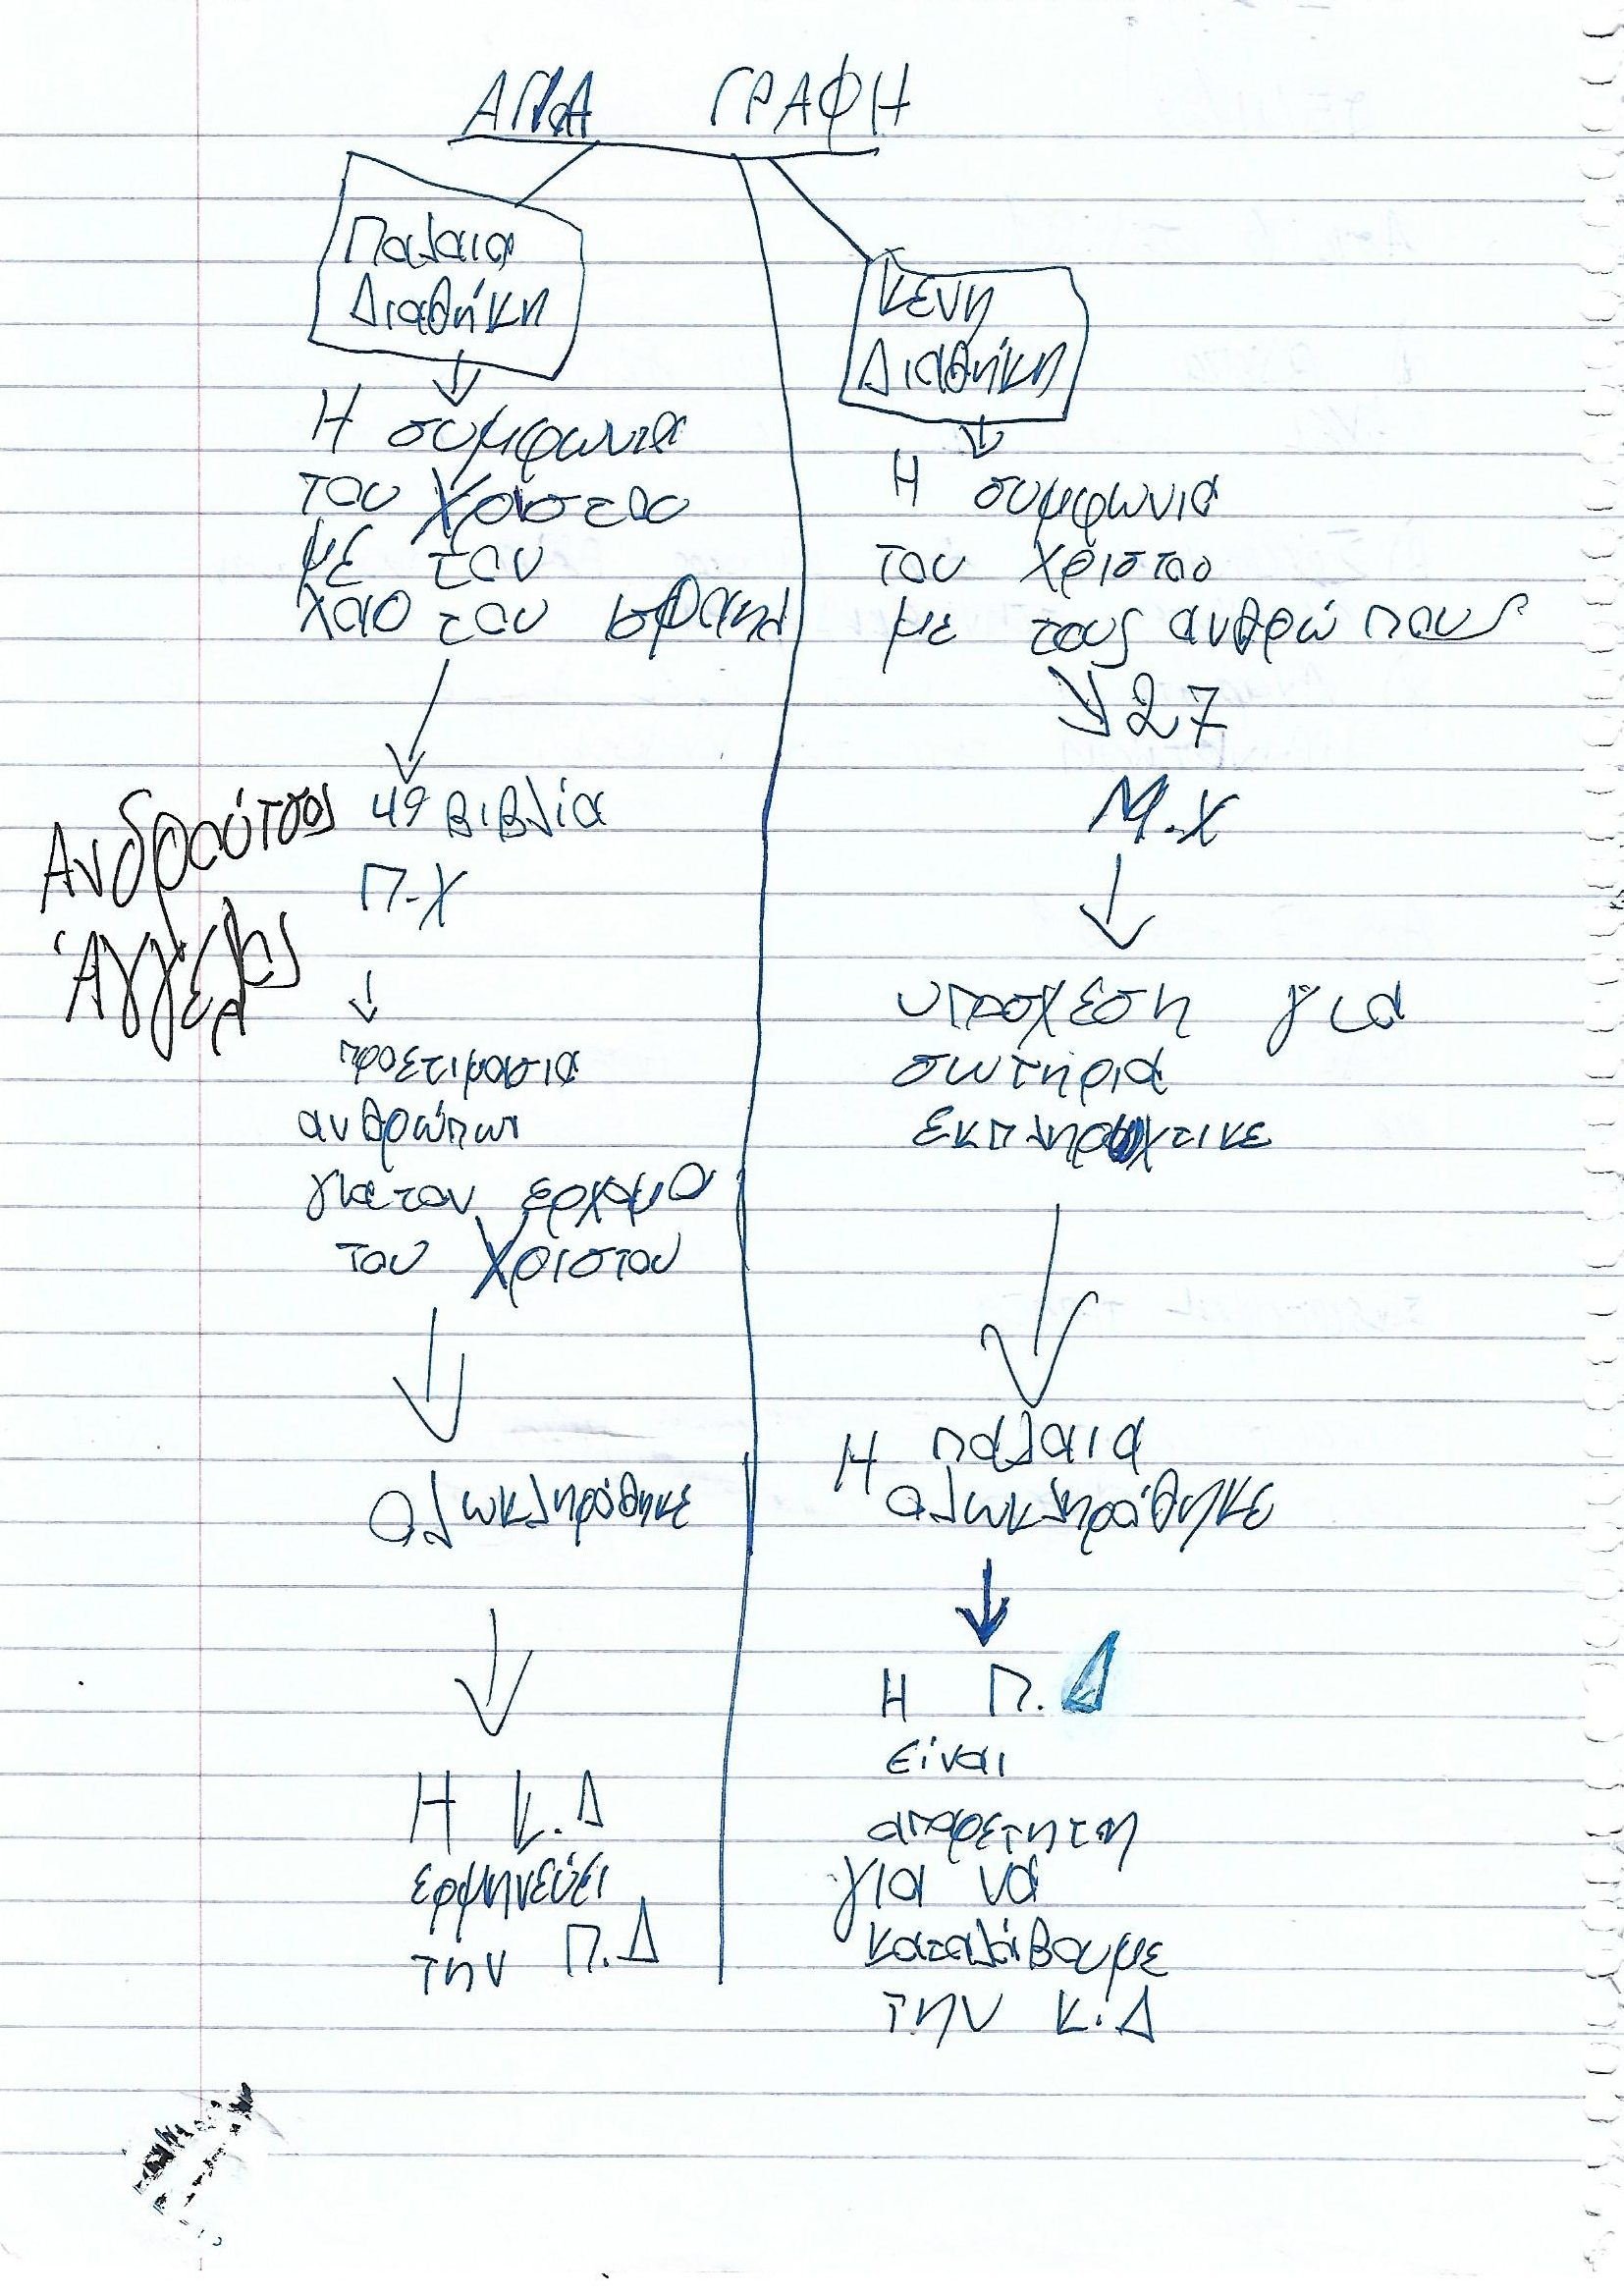 ΑΓΙΑ ΓΡΑΦΗ
Παλαια
Διαθήκη
Η συμφωνια
του Χριστου
με τον
λαο του ισραηλ
49 βιβλία
Π.Χ
Ανδρούτσος
Άγγελος
προετιμασια
ανθρώπων
για τον ερχομο
του Χριστου
ολωκληρόθηκε
Η Κ.Δ
ερμηνεύει
την Π.Δ
Κενη
Διαθήκη
Η συμφωνια
του χριστου
με τους ανθρώπους
27
Μ.Χ
υποσχεση για
σωτηρια
εκπληροχτικε
Η παλαια
ολωκληρόθηκε
Η Π.Δ
είναι
απαρετητη
για να
καταλάβουμε
την Κ.Δ